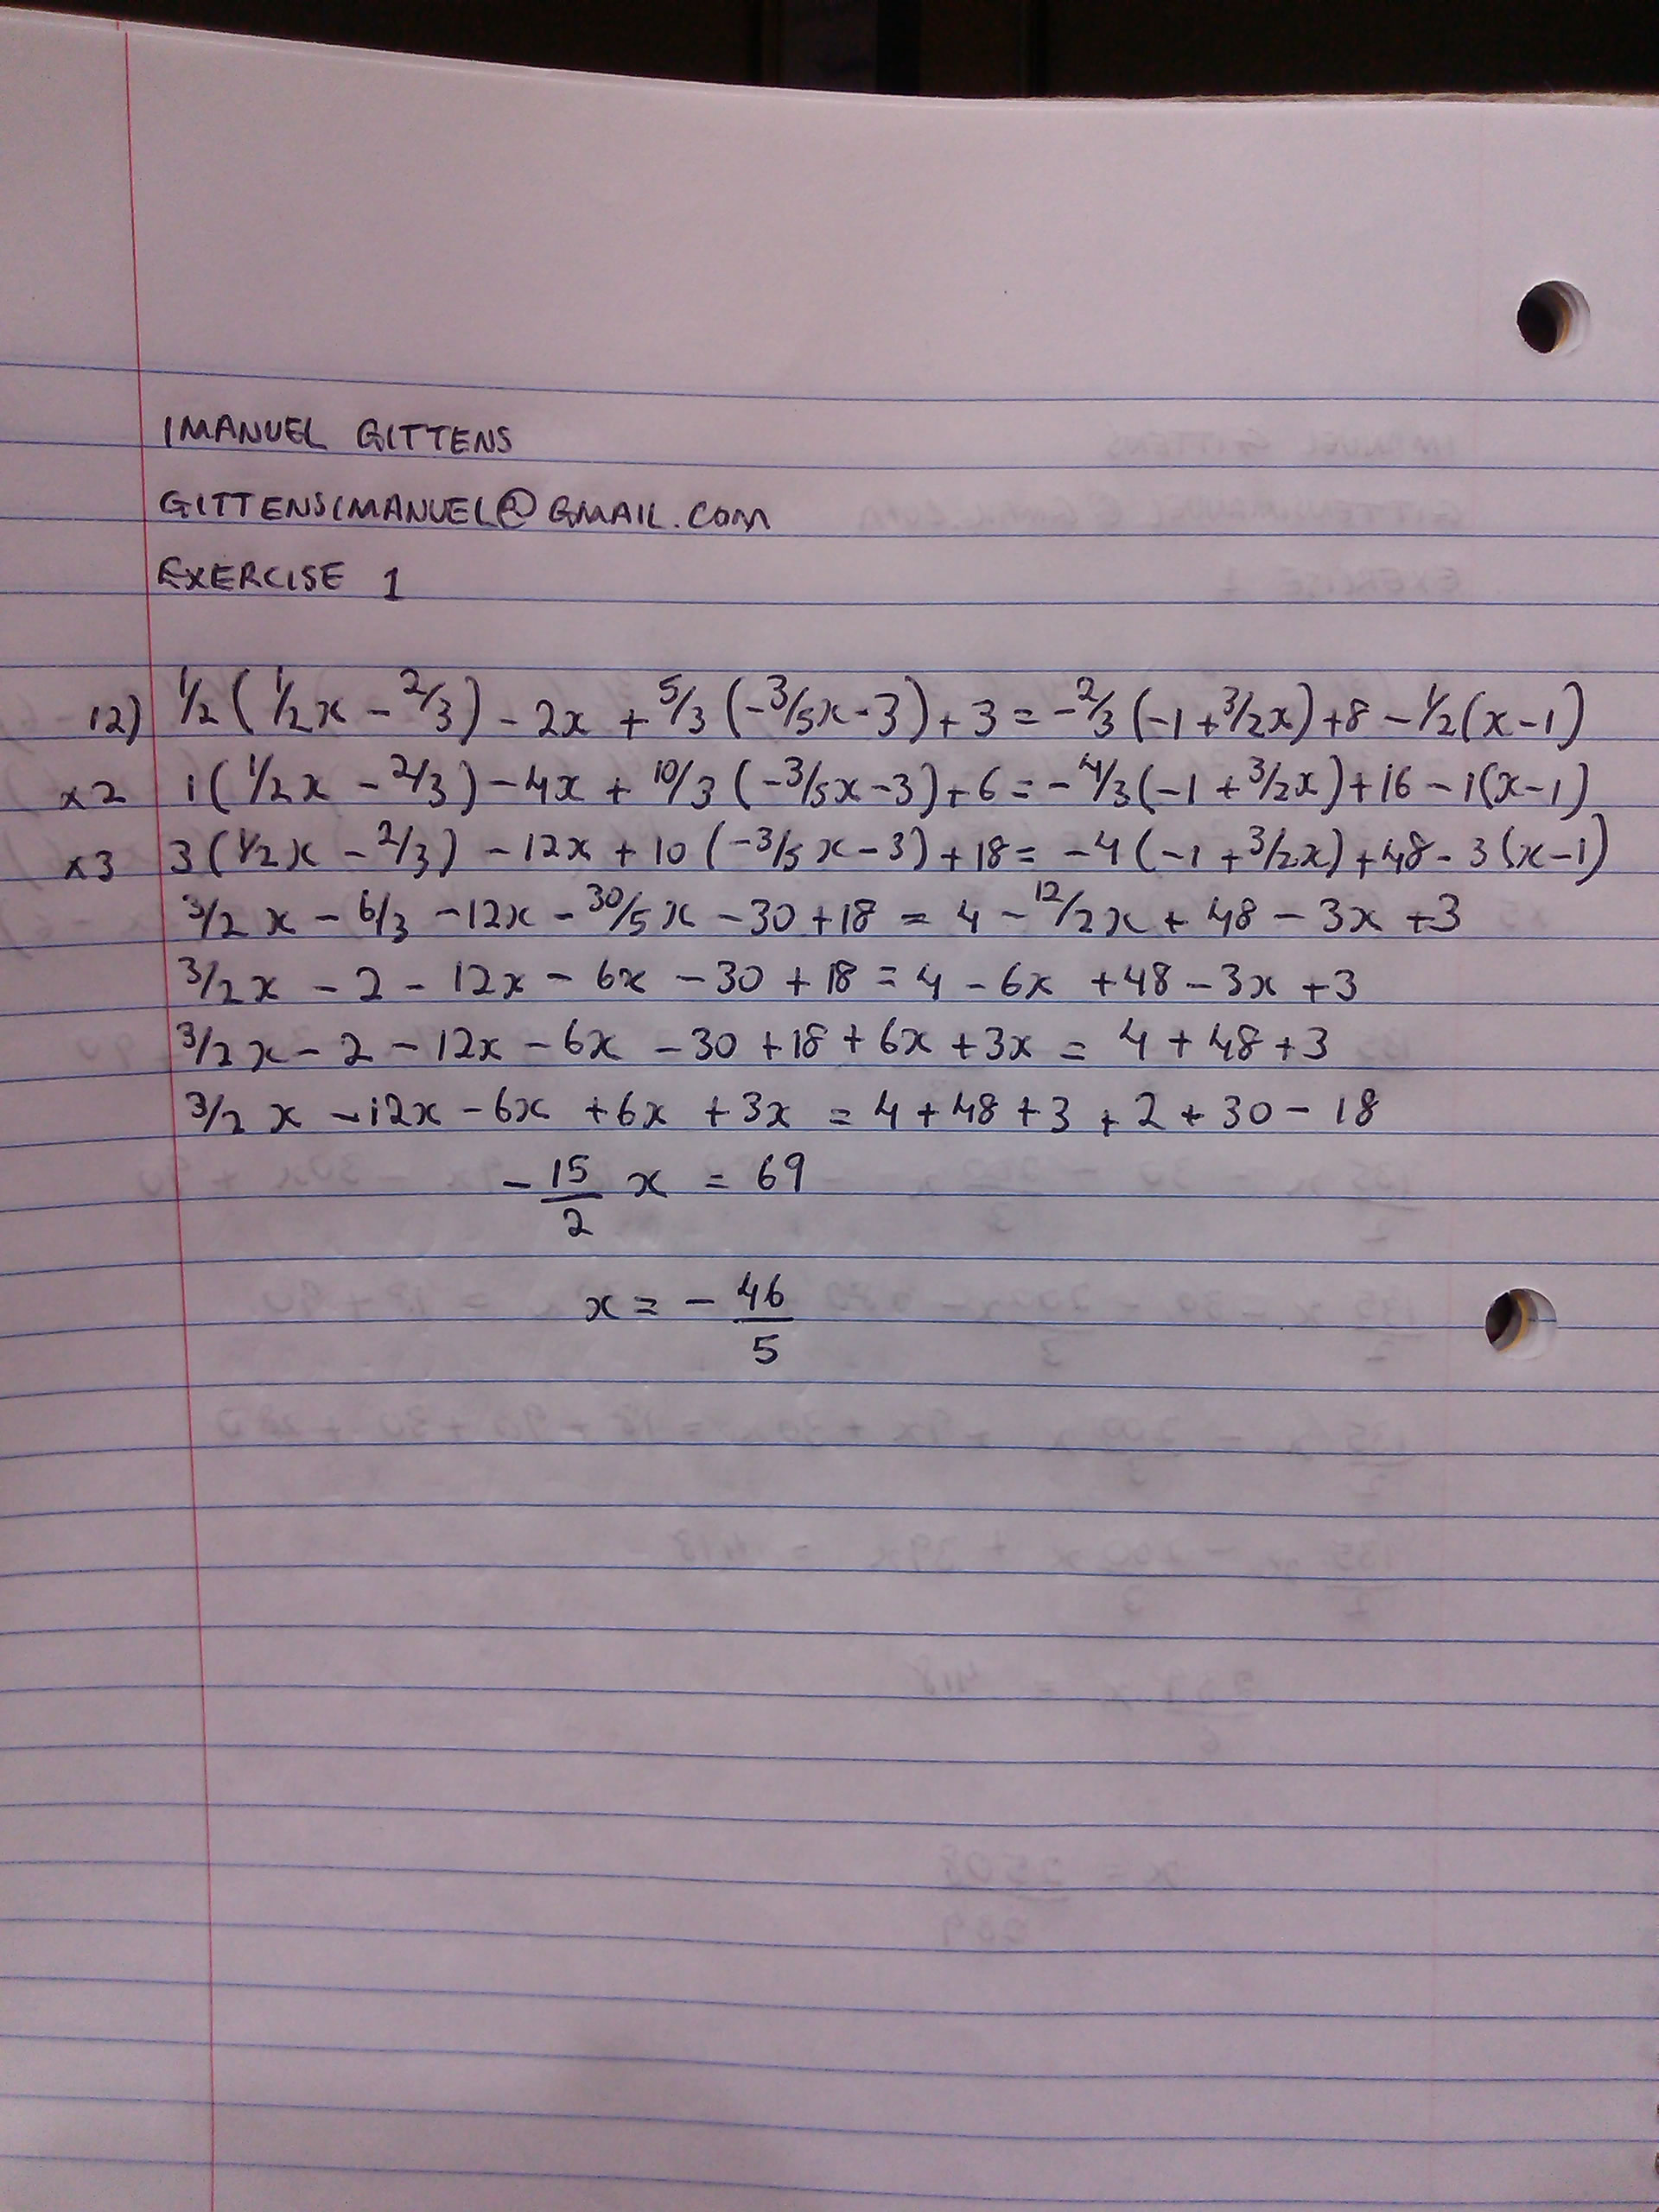 IMANUEL GITTENS
GITTENSIMANUEL@GMAIL.COM
EXERCISE 1
12) 1/2 (1/2x - 2/3) - 2x + 5/3 (-3/5x - 3) + 3 = -2/3 (-1 + 3/2x) + 8 - 1/2 (x - 1)
x2 1(1/2x - 2/3) - 4x + 10/3 (-3/5x - 3) + 6 = -4/3 (-1 + 3/2x) + 16 - 1(x - 1)
x3 3(1/2x - 2/3) - 12x + 10 (-3/5x - 3) + 18 = -4 (-1 + 3/2x) + 48 - 3(x - 1)
3/2x - 6/3 - 12x - 30/5x - 30 + 18 = 4 - 12/2x + 48 - 3x + 3
3/2x - 2 - 12x - 6x - 30 + 18 = 4 - 6x + 48 - 3x + 3
3/2x - 2 - 12x - 6x - 30 + 18 + 6x + 3x = 4 + 48 + 3
3/2x - 12x - 6x + 6x + 3x = 4 + 48 + 3 + 2 + 30 - 18
-15/2 x = 69
x = -46/5